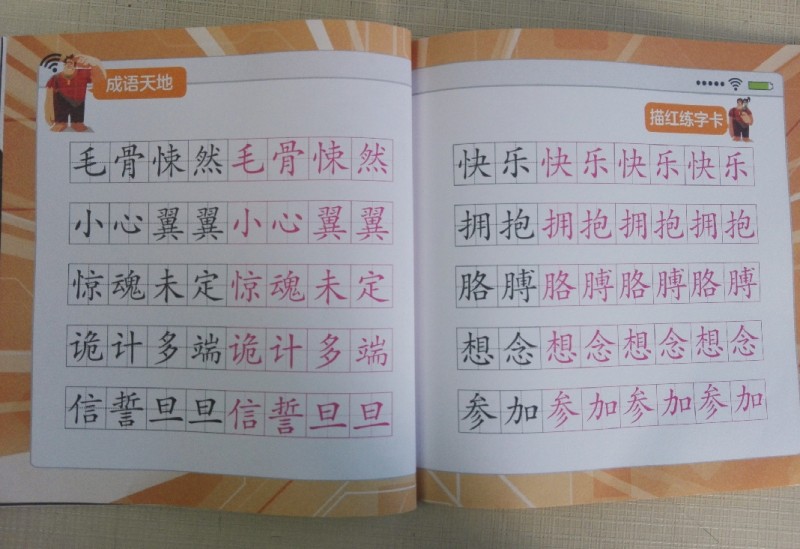 成语天地
毛骨悚然毛骨悚然
小心翼翼小心翼翼
惊魂未定惊魂未定
诡计多端诡计多端
信誓旦旦信誓旦旦
描红练字卡
快乐快乐快乐快乐
拥抱拥抱拥抱拥抱
胳膊胳膊胳膊胳膊
想念想念想念想念
参加参加参加参加